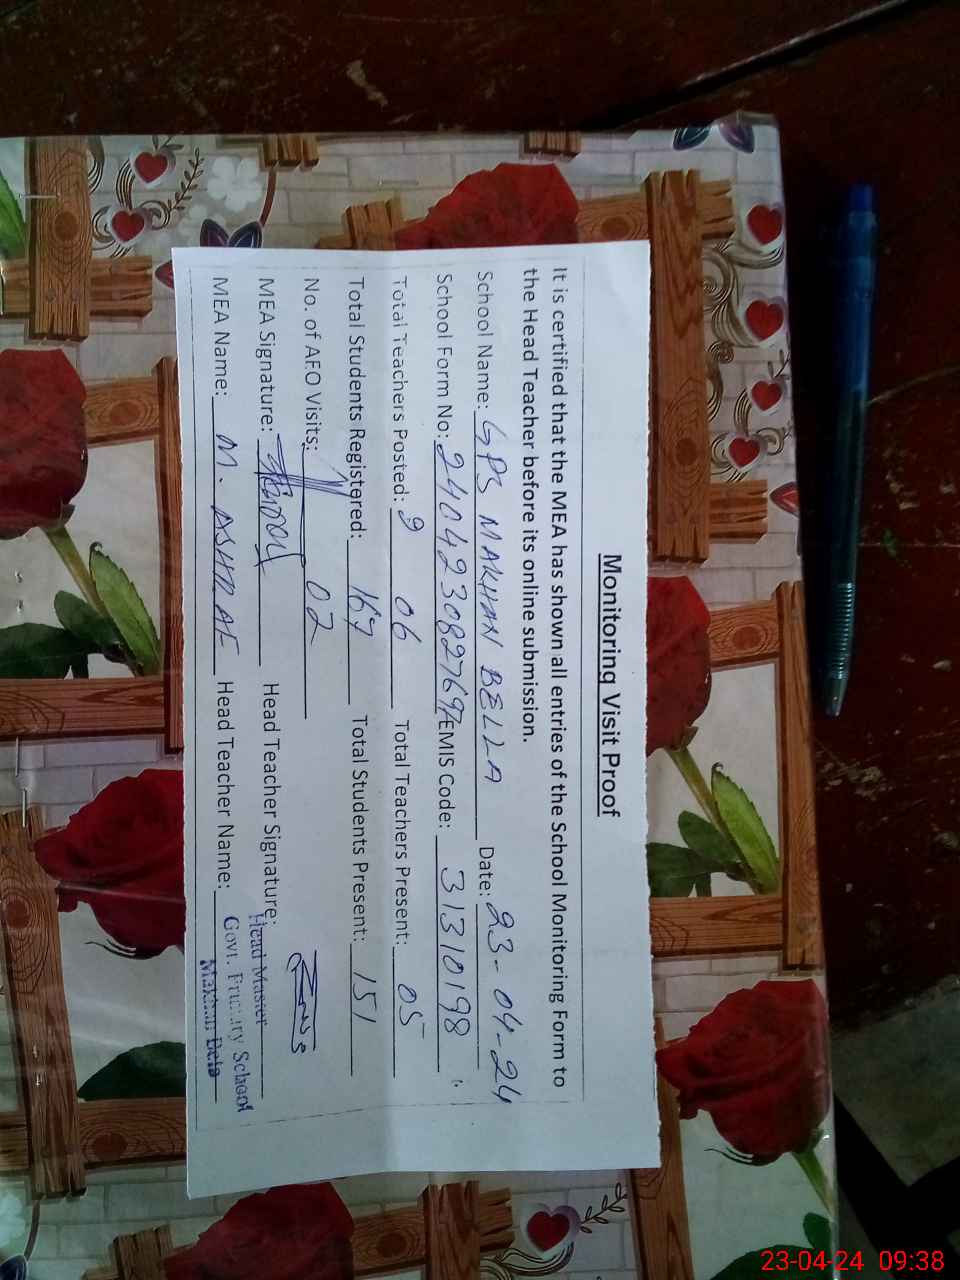 Monitoring Visit Proof
It is certified that the MEA has shown all entries of the School Monitoring Form to
the Head Teacher before its online submission.
School Name: GPS MAKHAN BELLA Date: 23-04-24
School Form No: 24042308276 EMIS Code: 31310198
Total Teachers Posted: 06 Total Teachers Present: 05
Total Students Registered: 167 Total Students Present: 151
No. of AEO Visits: 02
MEA Signature: Head Teacher Signature:
Head Master
MEA Name: M. ASHRAF Head Teacher Name:
Govt. Primary School
Makhan Bela
23-04-24 09:38